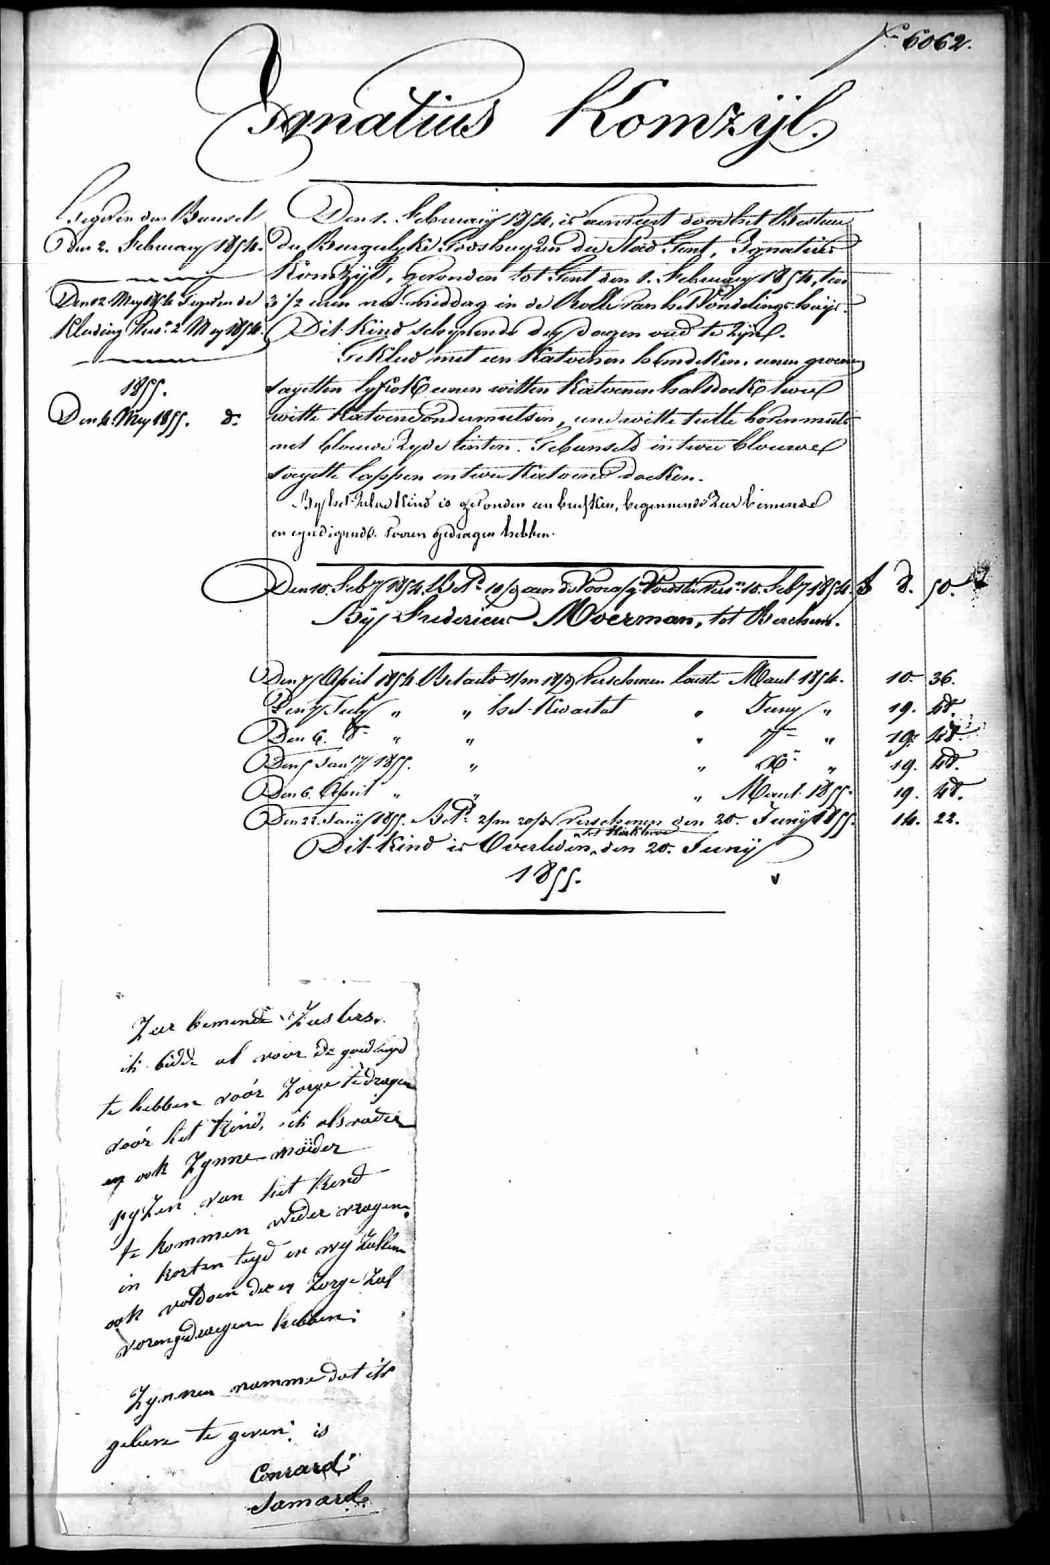 No 6062.
Ignatius Komzijl.
Gegeven den Bunsel
den 2. February 1854.
Den 12 Mey 1854 Gegeven de
Kleeding Pres. 2 Mey 1854.
1855.
Den 4. Mey 1855. do
Den 1. February 1854, is aenveert door het Bestuer
der Burgelyke Godshuyzen der Stad Gent, Ignatius
Komzyl, gevonden tot Gent den 1. February 1854, ten
3 1/2 uren na middag in de Rolle van het Vondelings-huys.
Dit Kind schynende dry dagen oud te zyn.
Gekleed met een Katoenen hemdeken, eenen groenen
sayetten lyfrok eenen witten Katoenen halsdoek twee
witte Katoene ondermutsen, eene witte tulle bovenmuts
met blauwe zyde linten. Gebunseld in twee blauwe
sayette lappen en twee Katoene doeken.
By het zelve Kind is gevonden een briefken, beginnende Zeer beminde
en eyndigende vooren gedragen hebben.
Den 10. Feby 1854 Bet. 10/9 aen de Voorz. Voedster Vers. 10. Feby 1854. f d. 50.
By Fredericus Moerman, tot Berchem.
Den 7 April 1854 Betaelt 1/m 18/9 Verschenen laeste Maert 1854. 10. 36.
Den 7 July " " het Kwartael " Juny " 19. 48.
Den 6. 8r " " " 7r " 19. 48.
Den 5 Jany 1855. " " Xr " 19. 48.
Den 6. April " " " Maert 1855. 19. 48.
Den 22. Junij 1855. Bet. 2/m 20/d Verschenen den 20. Junij 1855. 14. 22.
Dit Kind is Overleden, den 20. Junij
1855.
Zeer beminde Zusters.
ik bidde ul voor de goedheyd
te hebben voór Zorge te dragen
voór het Kind, ik als vader
en ook Zynne moeder
pyzen van het Kind
te kommen weder vragen
in korten tyd en wy zullen
ook voldoen die er Zorge zal
vorengedraegen hebben:
Zynnen namme dat ik
gelieve te geven: is
Conrard
Samard